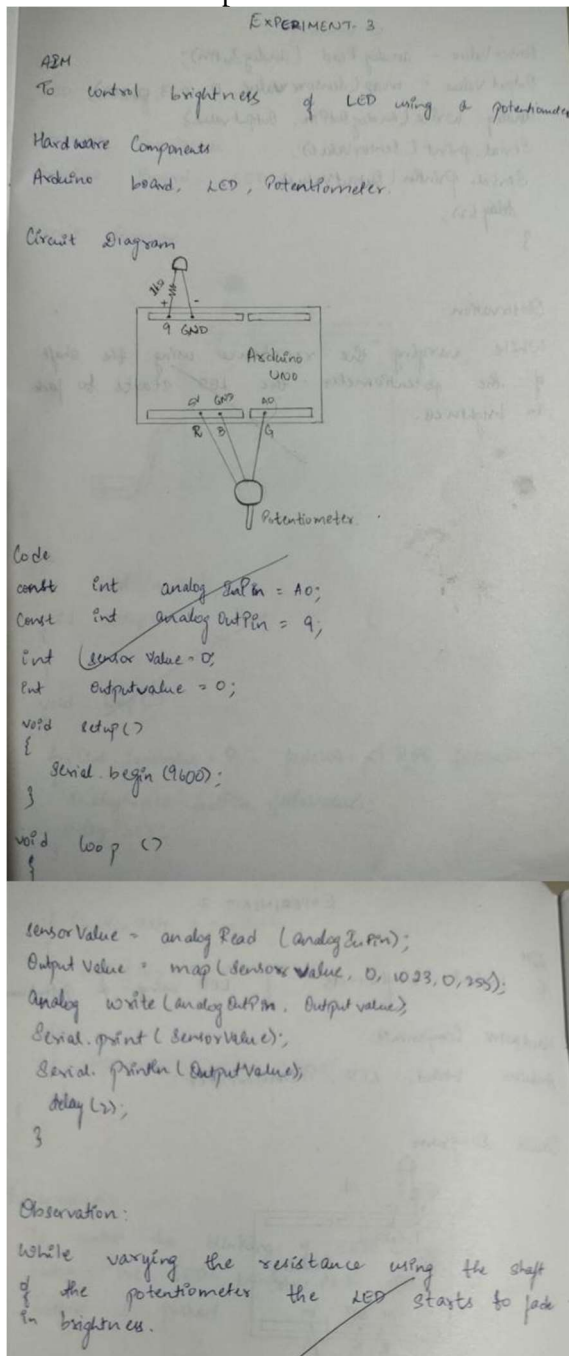 EXPERIMENT- 3
AIM
To control brightness of LED using a potentiometer
Hardware Components
Arduino board, LED, Potentiometer.
Circuit Diagram
+ -
9 GND
Arduino
UNO
5V GND A0
R B G
Potentiometer.
Code
const int analog InPin = A0;
Const int analog OutPin = 9;
int (sensor Value = 0;
int Outputvalue = 0;
void setup()
{
Serial.begin (9600);
}
void loop ()
{
sensorValue = analog Read (analogInPin);
Output Value = map (sensors value, 0, 1023, 0, 255);
analog write (analog OutPin, Output value);
Serial.print ( SensorValue);
Serial. println (OutputValue);
delay (2);
}
Observation:
While varying the resistance using the shaft
of the potentiometer the LED starts to fade
in brightness.